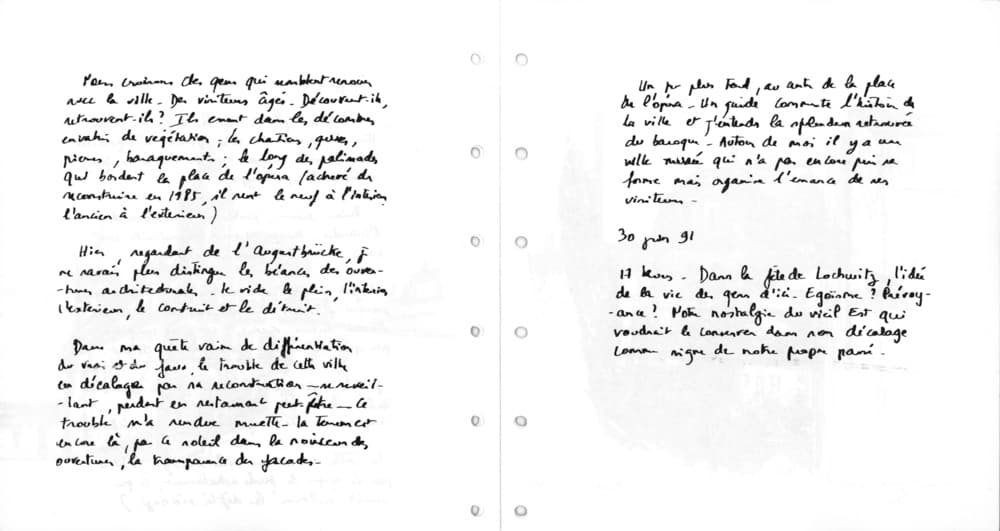 Nous croisons des gens qui semblent renouer
avec la ville - Des visiteurs âgés - Découvrent-ils,
retrouvent-ils ? Ils errent dans les décombres
envahis de végétation ; les chatons, grues,
pierres, baraquements ; le long des palissades
qui bordent la place de l'opéra (achevé de
reconstruire en 1985, il sent le neuf à l'intérieur
l'ancien à l'extérieur)
Hier, regardant de l'Augustbrücke, je
ne savais plus distinguer les béances des ouver-
-tures architecturales - le vide le plein, l'intérieur
l'extérieur, le construit et le détruit.
Dans ma quête vaine de différentiation
du vrai et du faux, le trouble de cette ville
en décalage par sa reconstruction - se réveil-
-lant, perdant en restaurant peut-être - Ce
trouble m'a rendue muette - la Terreur est
encore là, par ce soleil dans la noirceur des
ouvertures, la transparence des façades -
Un peu plus tard, au centre de la place
de l'opéra - Un guide commente l'histoire de
la ville et j'entends la splendeur retrouvée
du baroque - Autour de moi il y a une
ville musée qui n'a pas encore pris sa
forme mais organise l'errance de ses
visiteurs -
30 juin 91
17 heures - Dans la fête de Loschwitz, l'idée
de la vie des gens d'ici - Egoïsme ? Prévoy-
-ance ? Notre nostalgie du vieil Est qui
voudrait le conserver dans son décalage
comme signe de notre propre passé.